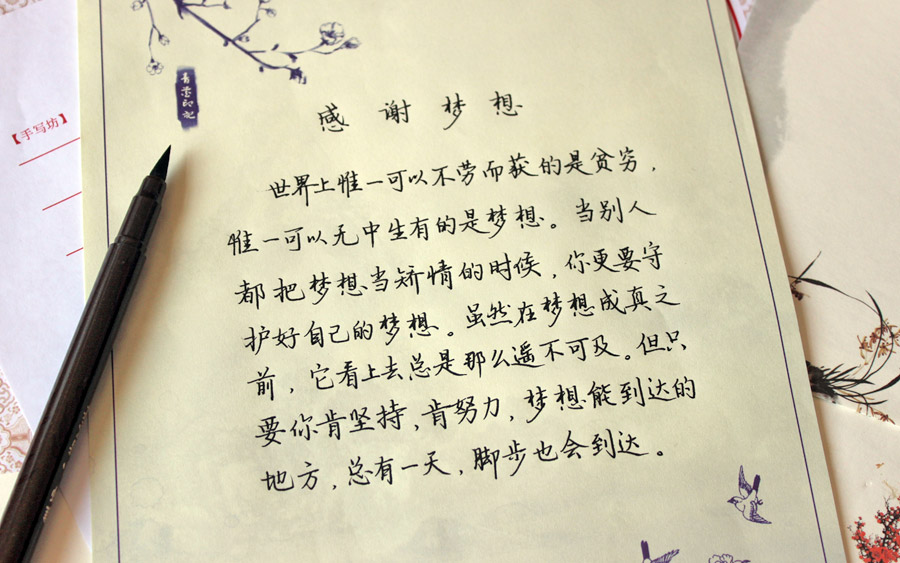 【手写坊】
感谢梦想
世界上惟一可以不劳而获的是贫穷，
惟一可以无中生有的是梦想。当别人
都把梦想当矫情的时候，你更要守
护好自己的梦想。虽然在梦想成真之
前，它看上去总是那么遥不可及。但只
要你肯坚持，肯努力，梦想能到达的
地方，总有一天，脚步也会到达。